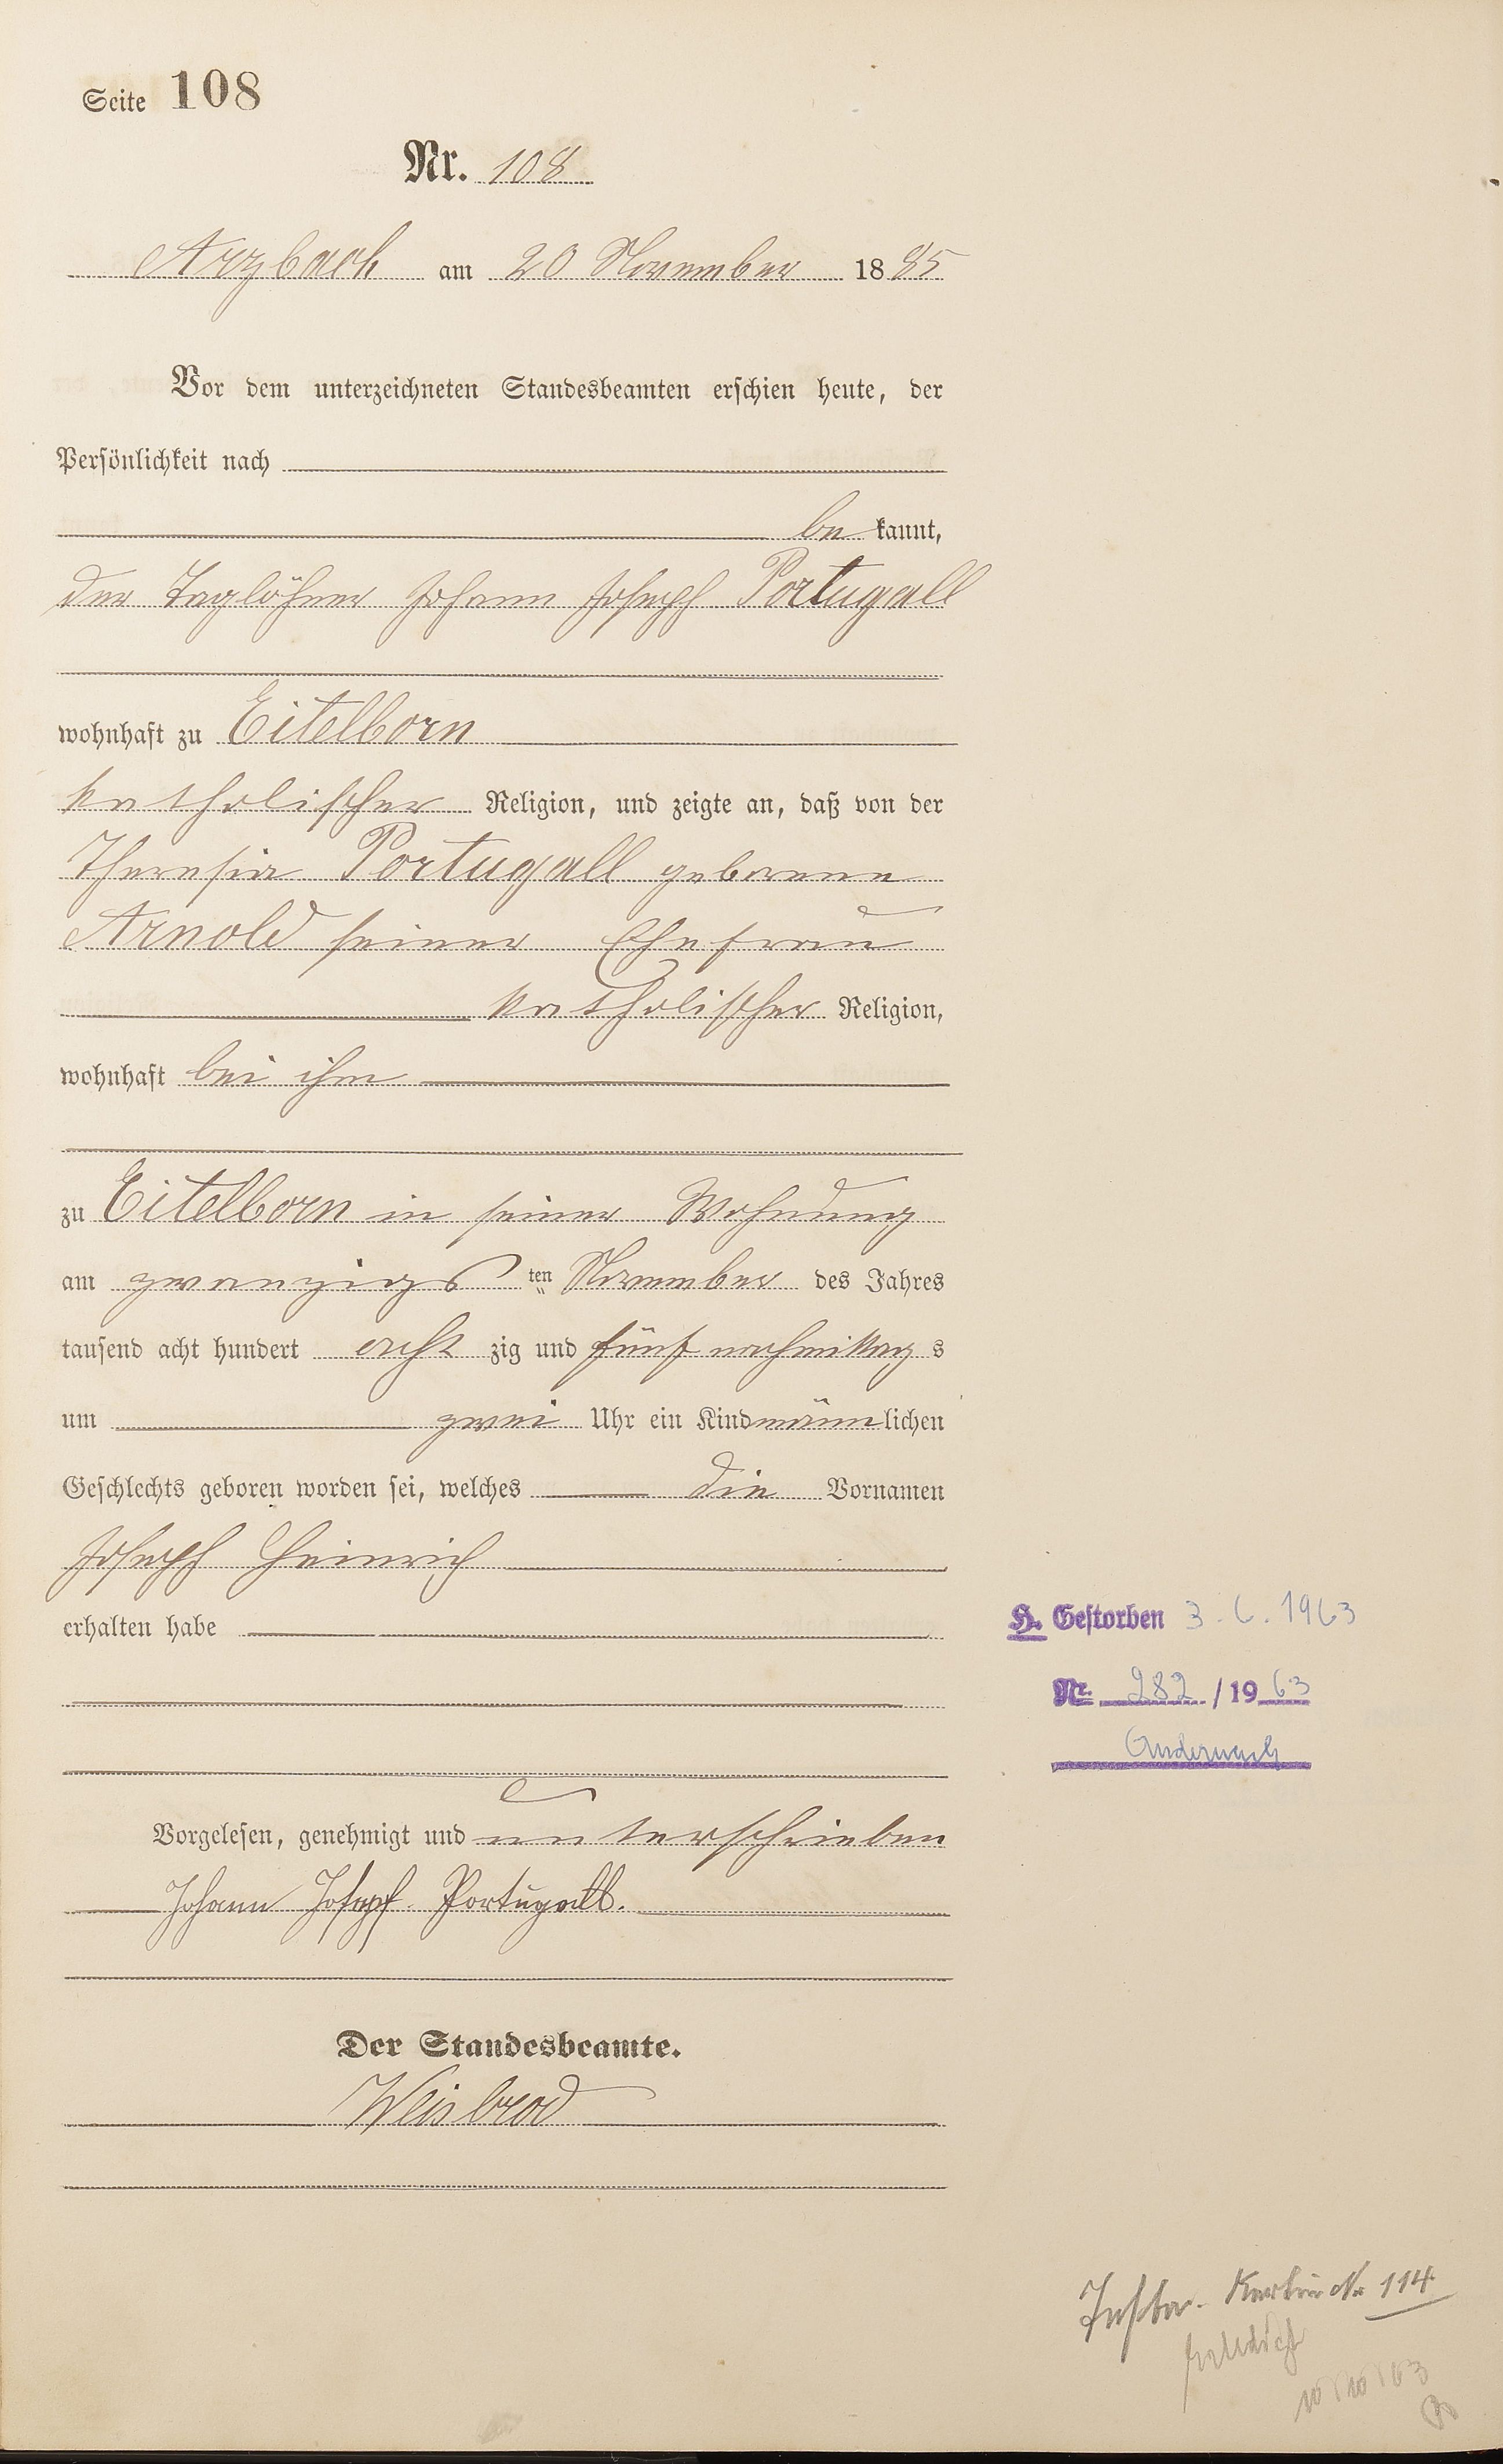 Seite 108
Nr. 108
Arzbach am 20 November 1885
Vor dem unterzeichneten Standesbeamten erschien heute, der
Persönlichkeit nach
be kannt,
der Taglöhner Johann Joseph Portugall
wohnhaft zu Eitelborn
katholischer Religion, und zeigte an, daß von der
Theresia Portugall geborene
Arnold seiner Ehefrau
katholischer Religion,
wohnhaft bei ihm
zu Eitelborn in seiner Wohnung
am zwanzigs ten November des Jahres
tausend acht hundert acht zig und fünf nachmittag s
um zwei Uhr ein Kind männlichen
Geschlechts geboren worden sei, welches die Vornamen
Joseph Heinrich
erhalten habe
H. Gestorben 3.6.1963
Nr. 282 / 19 63
Andernach
Vorgelesen, genehmigt und unterschrieben
Johann Joseph Portugall.
Der Standesbeamte.
Weisbrod
No 114